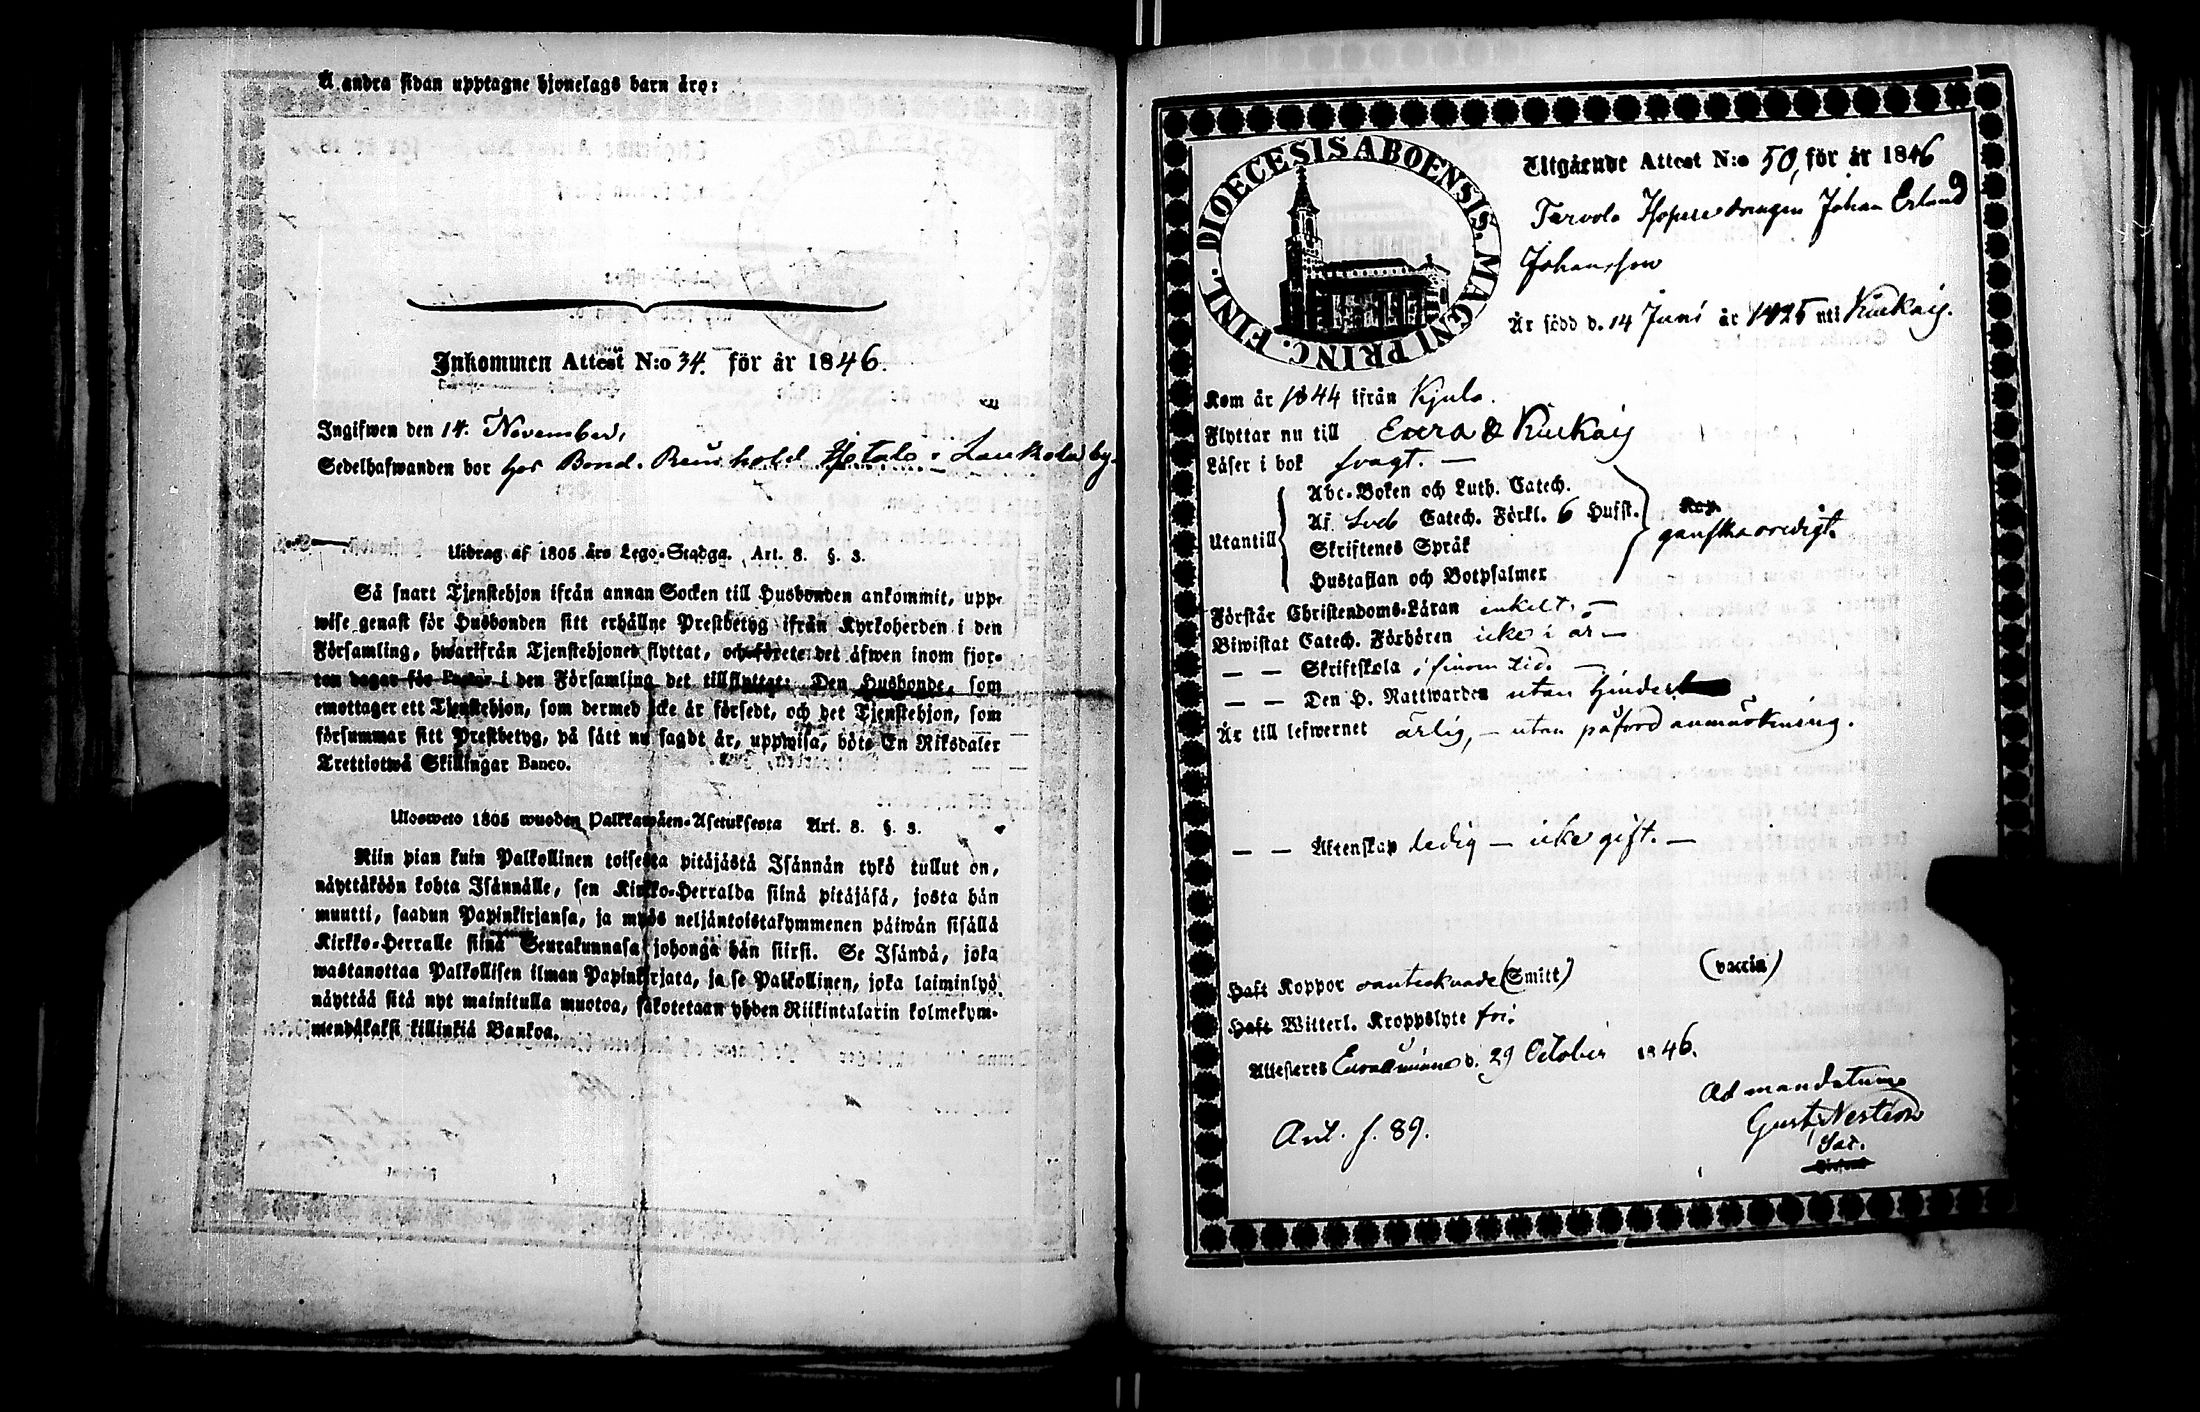 Å andra sidan upptagne hjonelags barn äro:
Inkommen Attest N:o 34. för år 1846.
Ingifwen den 14. November,
Sedelhafwanden bor hos Bond. Reinhold Hjetals i Laukola by.
Utdrag af 1805 års Lego-Stadga. Art. 8. §. 3.
Så snart Tjenstehjon ifrån annan Socken till Husbonden ankommit, upp-
wise genast för Husbonden sitt erhållne Prestbetyg ifrån Kyrkoherden i den
Församling, hwarifrån Tjenstehjonet flyttat, och förete det äfwen inom fjor-
ton dagar för Pastor i den Församling det tillflyttat: Den Husbonde, som
emottager ett Tjenstehjon, som dermed icke är försedt, och det Tjenstehjon, som
försummar sitt Prestbetyg, på sätt nu sagdt är, uppwisa, böte En Riksdaler
Trettiotwå Skillingar Banco.
Ulosweto 1805 wuoden Palkkawäen-Asetuksesta Art. 8. §. 3.
Niin pian kuin Palkollinen toisesta pitäjästä Isännän tykö tullut on,
näyttäköön kohta Isännälle, sen Kirkko-Herralda siinä pitäjäsä, josta hän
muutti, saadun Papinkirjansa, ja myös neljäntoistakymmenen päiwän sisällä
Kirkko-Herralle siinä Seurakunnasa johonga hän siirsi. Se Isändä, joka
wastanottaa Palkollisen ilman Papinkirjata, ja se Palkollinen, joka laiminlyö
näyttää sitä nyt mainitulla muotoa, sakotetaan yhden Riikintalarin kolmekym-
mendäkaksi killinkiä Bankoa.
DIOECESIS ABOENSIS. MAGNI PRINC. FINL.
Utgående Attest N:o 50, för år 1846
Tarvola drengen Johan Erland
Johansson
Är född d. 14 Juni år 1825 uti Kiukais.
Kom år 1844 ifrån Kjulo.
Flyttar nu till Eura & Kiukais
Läser i bok svagt. —
Utantill
Abc-Boken och Luth. Catech.
Af Sveb Catech. Förkl. 6 Hufst.
Skriftenes Språk
Hustaflan och Botpsalmer
ganska oredigt.
Förstår Christendoms-Läran enkelt. —
Biwistat Catech. Förhören icke i år —
— — Skriftskola i sinom tid. —
— — Den H. Nattwarden utan hinder
Är till lefwernet ärlig, — utan påförd anmärkning.
— — Äktenskap ledig — icke gift. —
Haft Koppor oantecknade (Smitt) (vaccin)
Haft Witterl. Kroppslyte fri.
Attesteres Euraåminne d. 29 October 1846.
Ad mandatum
Gust. Nestieow
Sac.
Ant. f. 89.